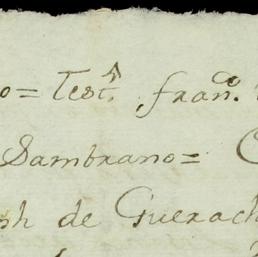 o= Test.º fran.co
Sambrano=
ph de Guerach